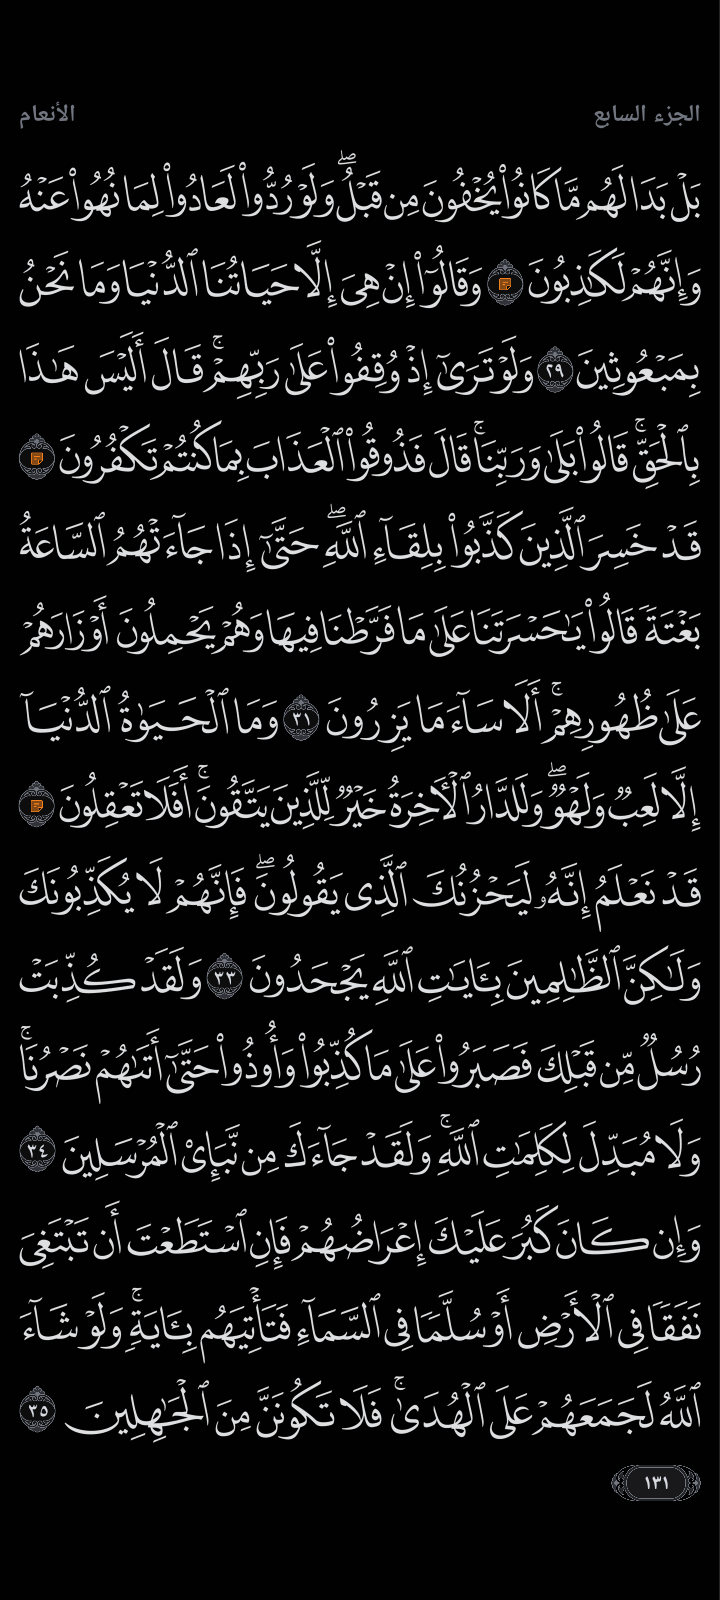 الجزء السابع
الأنعام
بَلْ بَدَا لَهُم مَّا كَانُوا۟ يُخْفُونَ مِن قَبْلُ ۖ وَلَوْ رُدُّوا۟ لَعَادُوا۟ لِمَا نُهُوا۟ عَنْهُ
وَإِنَّهُمْ لَكَـٰذِبُونَ وَقَالُوٓا۟ إِنْ هِىَ إِلَّا حَيَاتُنَا ٱلدُّنْيَا وَمَا نَحْنُ
بِمَبْعُوثِينَ ٢٩ وَلَوْ تَرَىٰٓ إِذْ وُقِفُوا۟ عَلَىٰ رَبِّهِمْ ۚ قَالَ أَلَيْسَ هَـٰذَا
بِٱلْحَقِّ ۚ قَالُوا۟ بَلَىٰ وَرَبِّنَا ۚ قَالَ فَذُوقُوا۟ ٱلْعَذَابَ بِمَا كُنتُمْ تَكْفُرُونَ
قَدْ خَسِرَ ٱلَّذِينَ كَذَّبُوا۟ بِلِقَآءِ ٱللَّهِ ۖ حَتَّىٰٓ إِذَا جَآءَتْهُمُ ٱلسَّاعَةُ
بَغْتَةً قَالُوا۟ يَـٰحَسْرَتَنَا عَلَىٰ مَا فَرَّطْنَا فِيهَا وَهُمْ يَحْمِلُونَ أَوْزَارَهُمْ
عَلَىٰ ظُهُورِهِمْ ۚ أَلَا سَآءَ مَا يَزِرُونَ ٣١ وَمَا ٱلْحَيَوٰةُ ٱلدُّنْيَآ
إِلَّا لَعِبٌ وَلَهْوٌ ۖ وَلَلدَّارُ ٱلْـَٔاخِرَةُ خَيْرٌ لِّلَّذِينَ يَتَّقُونَ ۚ أَفَلَا تَعْقِلُونَ
قَدْ نَعْلَمُ إِنَّهُۥ لَيَحْزُنُكَ ٱلَّذِى يَقُولُونَ ۖ فَإِنَّهُمْ لَا يُكَذِّبُونَكَ
وَلَـٰكِنَّ ٱلظَّـٰلِمِينَ بِـَٔايَـٰتِ ٱللَّهِ يَجْحَدُونَ ٣٣ وَلَقَدْ كُذِّبَتْ
رُسُلٌ مِّن قَبْلِكَ فَصَبَرُوا۟ عَلَىٰ مَا كُذِّبُوا۟ وَأُوذُوا۟ حَتَّىٰٓ أَتَىٰهُمْ نَصْرُنَا ۚ
وَلَا مُبَدِّلَ لِكَلِمَـٰتِ ٱللَّهِ ۚ وَلَقَدْ جَآءَكَ مِن نَّبَإِى۟ ٱلْمُرْسَلِينَ ٣٤
وَإِن كَانَ كَبُرَ عَلَيْكَ إِعْرَاضُهُمْ فَإِنِ ٱسْتَطَعْتَ أَن تَبْتَغِىَ
نَفَقًا فِى ٱلْأَرْضِ أَوْ سُلَّمًا فِى ٱلسَّمَآءِ فَتَأْتِيَهُم بِـَٔايَةٍ ۚ وَلَوْ شَآءَ
ٱللَّهُ لَجَمَعَهُمْ عَلَى ٱلْهُدَىٰ ۚ فَلَا تَكُونَنَّ مِنَ ٱلْجَـٰهِلِينَ ٣٥
١٣١